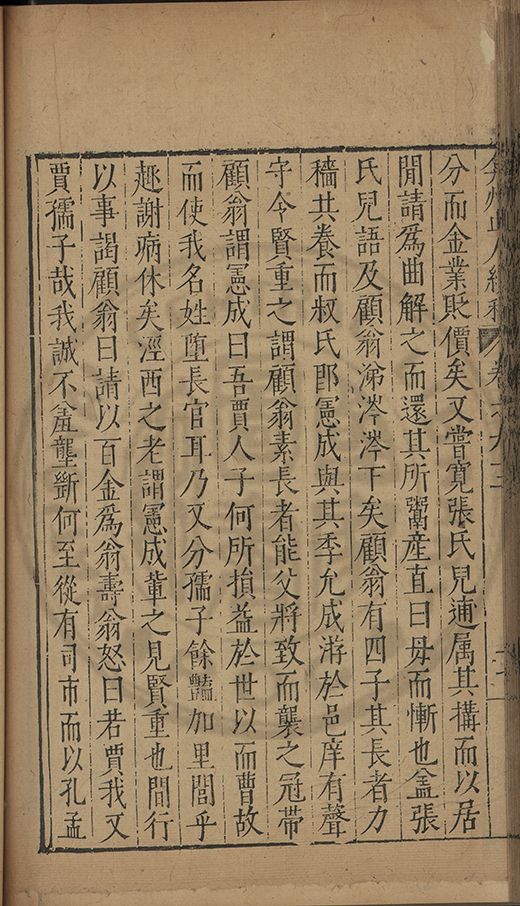 弇州山人續稿 卷之九三
分而金業貶價矣又嘗寬張氏兒逋屬其搆而以居
閒請爲曲解之而還其所鬻產直曰毋而慚也盒張
氏兒語及顧翁涕涔涔下矣顧翁有四子其長者力
穡共養而叔氏郎憲成與其季允成游於邑庠有聲
守令賢重之謂顧翁素長者能父將致而襲之冠帶
顧翁謂憲成曰吾賈人子何所損益於世以而曹故
而使我名姓墮長官耳乃又分孺子餘豔加里閭乎
趣謝病休矣涇西之老謂憲成輩之見賢重也間行
以事謁顧翁曰請以百金爲翁壽翁怒曰若賈我又
賈孺子哉我誠不羞壟斷何至從有司市而以孔孟